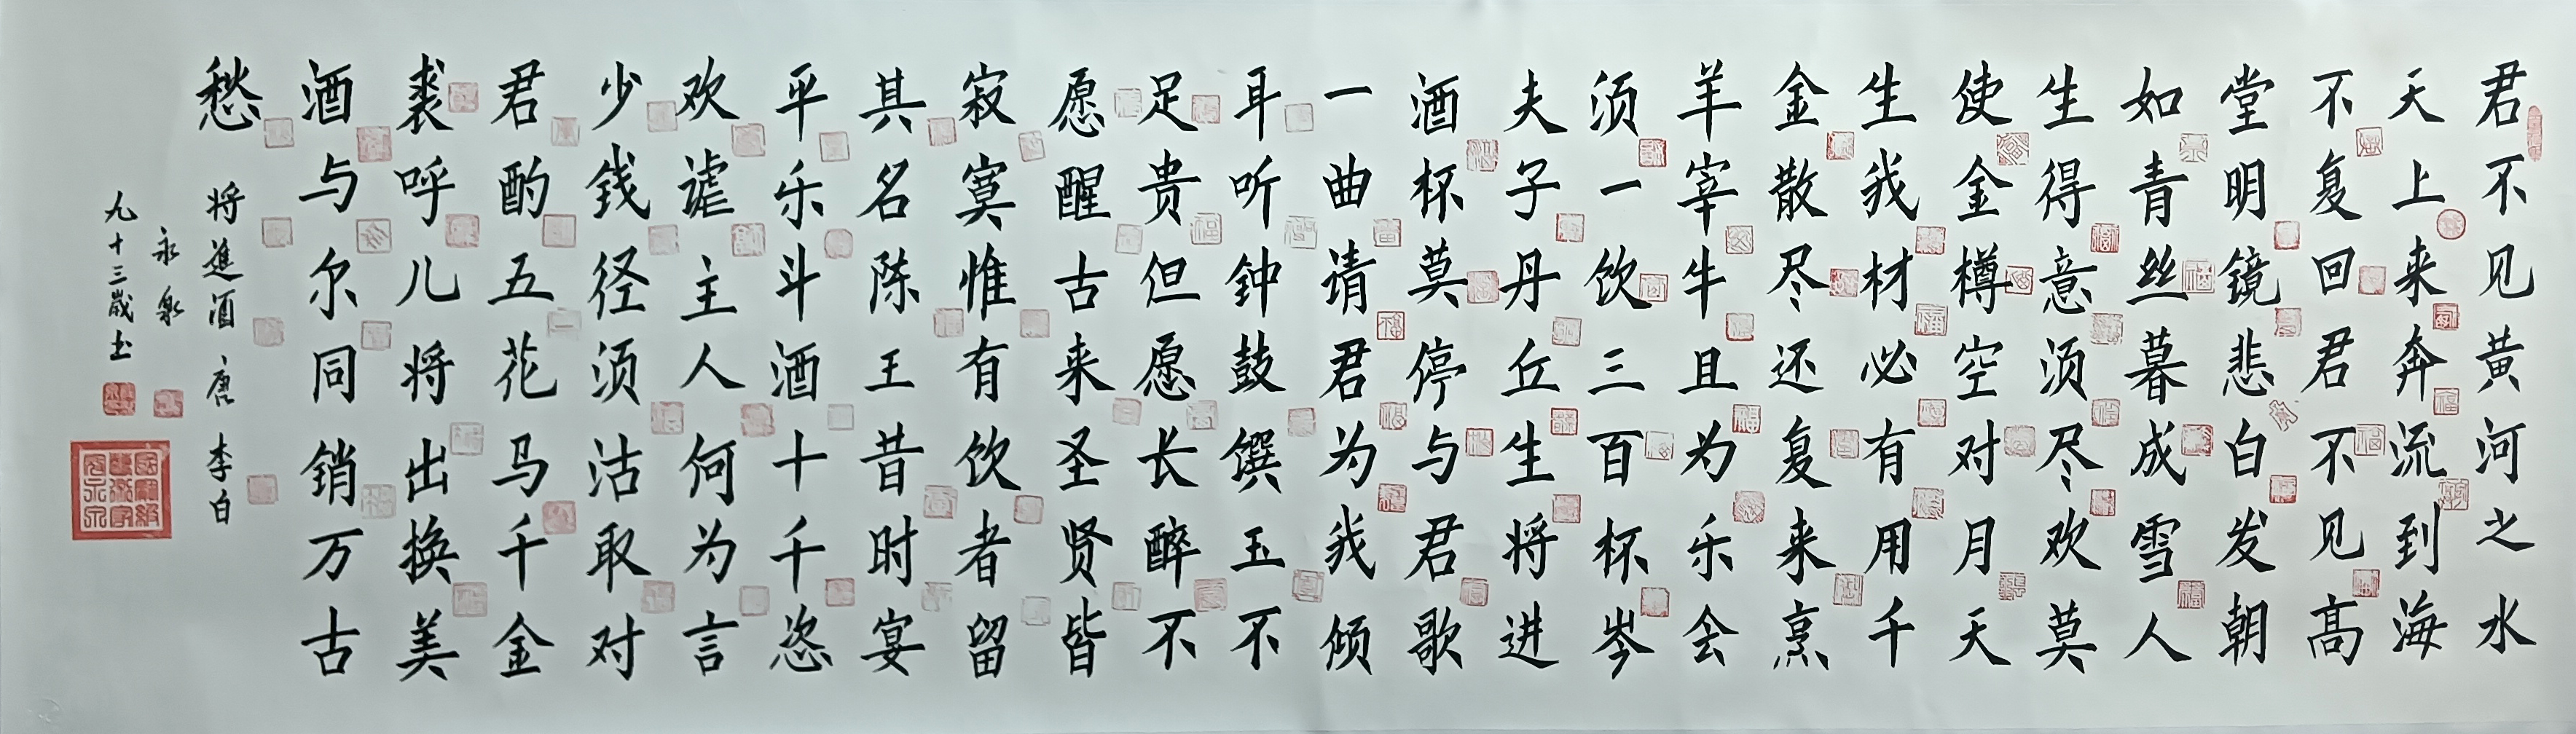 君不见黄河之水
天上来奔流到海
不复回君不见高
堂明镜悲白发朝
如青丝暮成雪人
生得意须尽欢莫
使金樽空对月天
生我材必有用千
金散尽还复来烹
羊宰牛且为乐会
须一饮三百杯岑
夫子丹丘生将进
酒杯莫停与君歌
一曲请君为我倾
耳听钟鼓馔玉不
足贵但愿长醉不
愿醒古来圣贤皆
寂寞惟有饮者留
其名陈王昔时宴
平乐斗酒十千恣
欢谑主人何为言
少钱径须沽取对
君酌五花马千金
裘呼儿将出换美
酒与尔同销万古
愁 将進酒 唐 李白
永樂
九十三嵗书